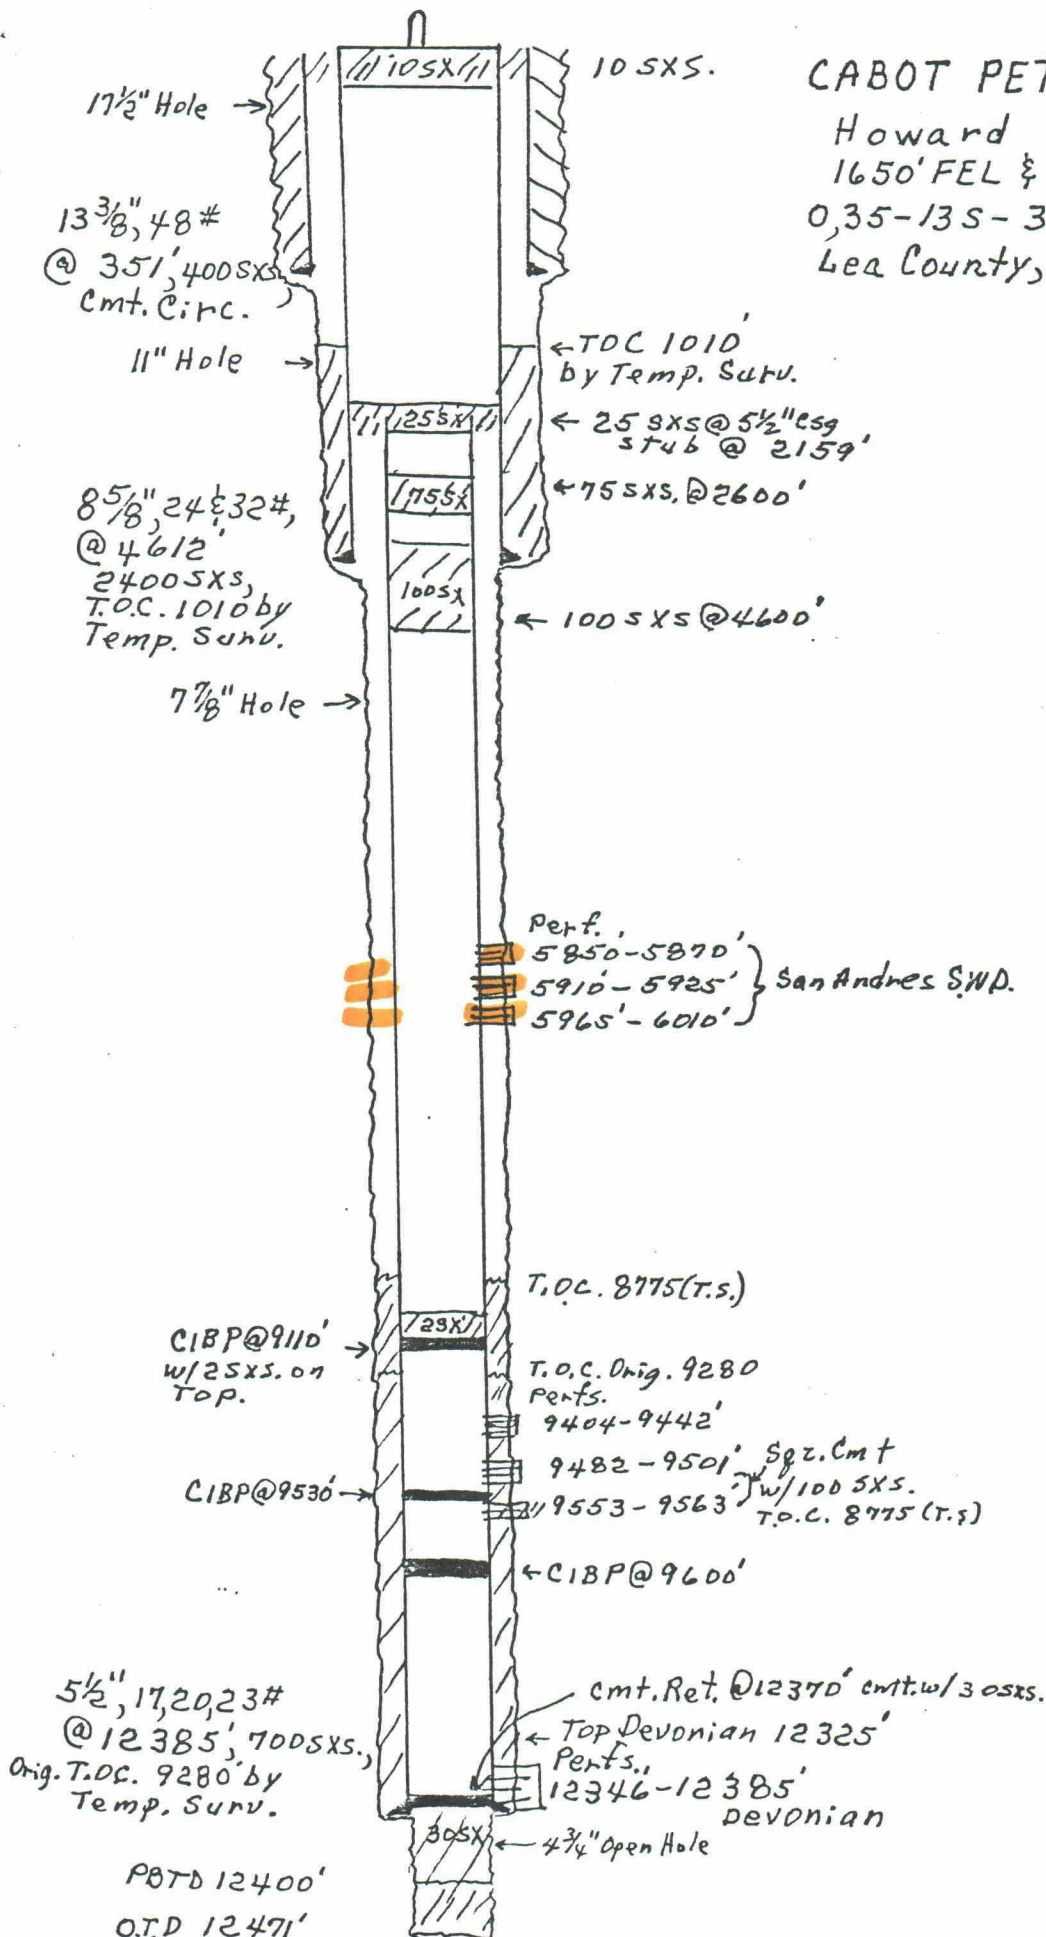 10 SX
10 SXS.
CABOT PET
Howard
1650' FEL &
O,35-13S-3
Lea County,
17½" Hole
13⅜", 48#
@ 351', 400 SXS,
Cmt. Circ.
11" Hole
TOC 1010'
by Temp. Surv.
25 SX
25 SXS @ 5½" csg
stub @ 2159'
75 SX
75 SXS. @ 2600'
8⅝", 24 & 32#,
@ 4612'
2400 SXS,
T.O.C. 1010 by
Temp. Surv.
100 SX
100 SXS @ 4600'
7⅞" Hole
Perf.
5850'-5870'
5910'-5925'
5965'-6010'
San Andres S.W.D.
T.O.C. 8775 (T.S.)
2 SX
CIBP @ 9110'
w/2 SXS. on
Top.
T.O.C. Orig. 9280
Perfs.
9404-9442'
9482-9501'
9553-9563'
Sqz. Cmt
w/100 SXS.
T.O.C. 8775 (T.S)
CIBP @ 9530'
CIBP @ 9600'
5½", 17,20,23#
@ 12385', 700 SXS.,
Orig. T.O.C. 9280' by
Temp. Surv.
Cmt. Ret. @ 12370' cmt. w/ 30 sxs.
Top Devonian 12325'
Perfs.,
12346-12385'
Devonian
30 SX
4¾" Open Hole
PBTD 12400'
O.T.D 12471'